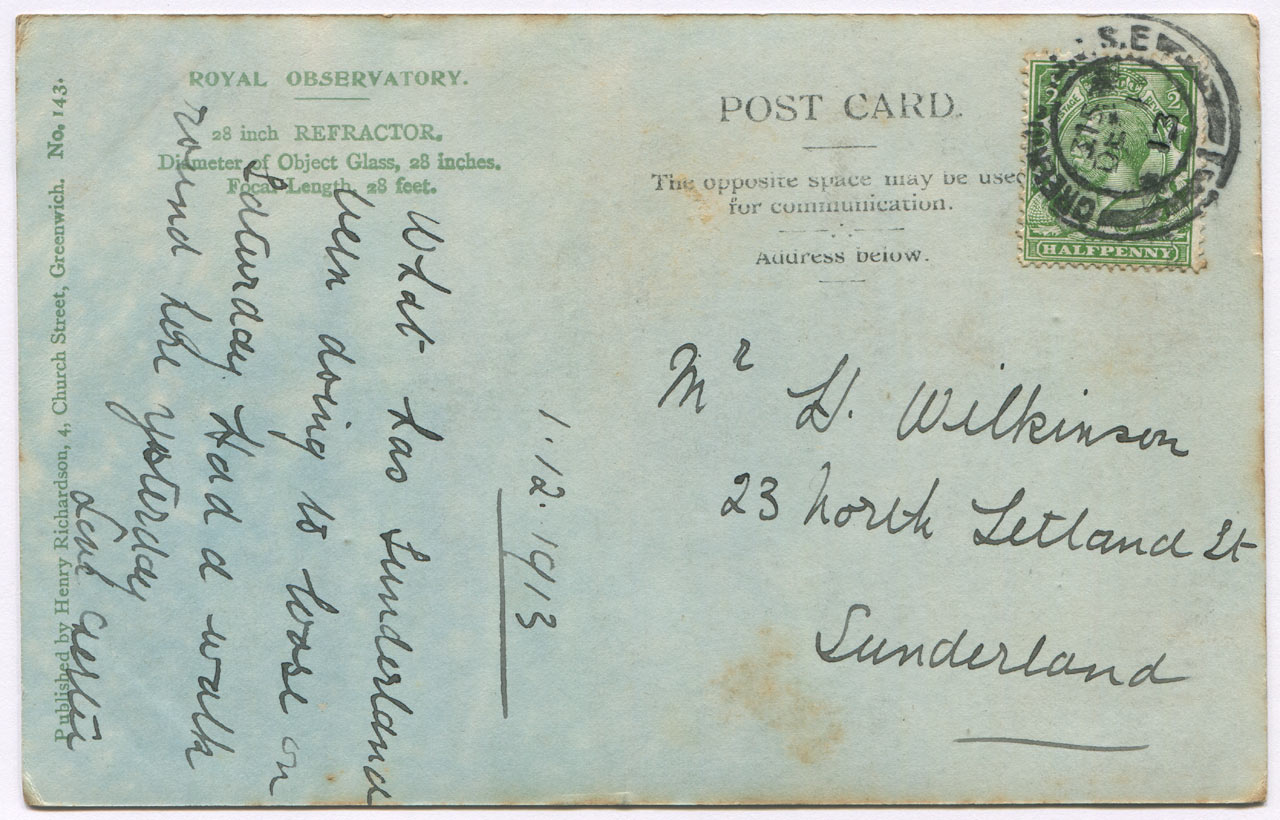 ROYAL OBSERVATORY.
28 inch REFRACTOR.
Diameter of Object Glass, 28 inches.
Focal Length, 28 feet.
Published by Henry Richardson, 4, Church Street, Greenwich. No. 143.
1.12.1913
What has Sunderland
been doing to loose on
Saturday. Had a walk
round here yesterday
POST CARD.
The opposite space may be used
for communication.
Address below.
GREENWICH
S.E
DE 1
13
HALFPENNY
Mr H. Wilkinson
23 North Letland St
Sunderland